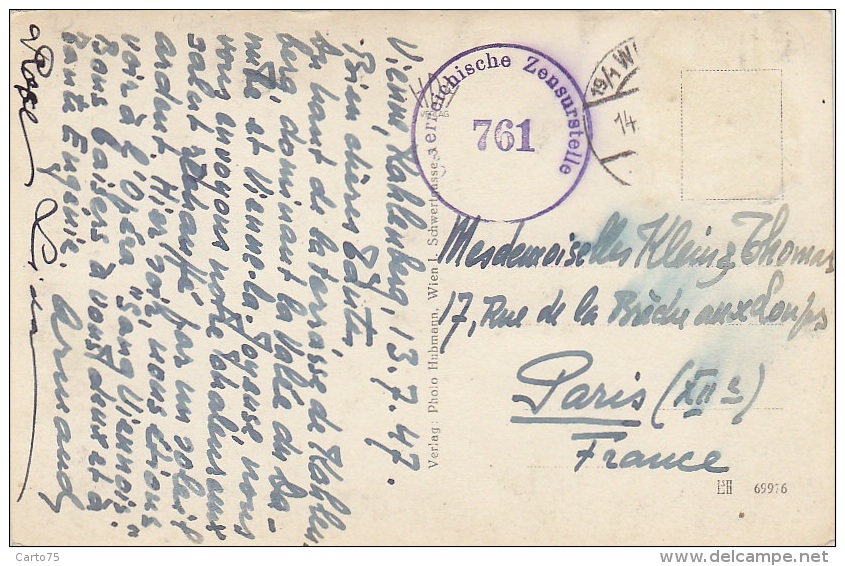 Vienne, Kahlenberg, 13.7.47.
Bien chères
Du haut de la terrasse du Kahlen-
berg, dominant la Vallée du Da-
nube et Vienne-la-Joyeuse, nous
vous envoyons notre chaleureux
salut réchauffé par un soleil
ardent. Hier soir, nous étions
voir à l'Opéra "Sang Viennois"
Bons baisers à vous deux et à
Tante Eugénie.
Armand
Österreichische Zensurstelle
761
14
Mesdemoiselles Klein & Thomas
17, Rue de la Brèche aux Loups
Paris (XIIe)
France
Verlag: Photo Hubmann, Wien I, Schwertgasse 3
69976
Carto75
www.delcampe.net